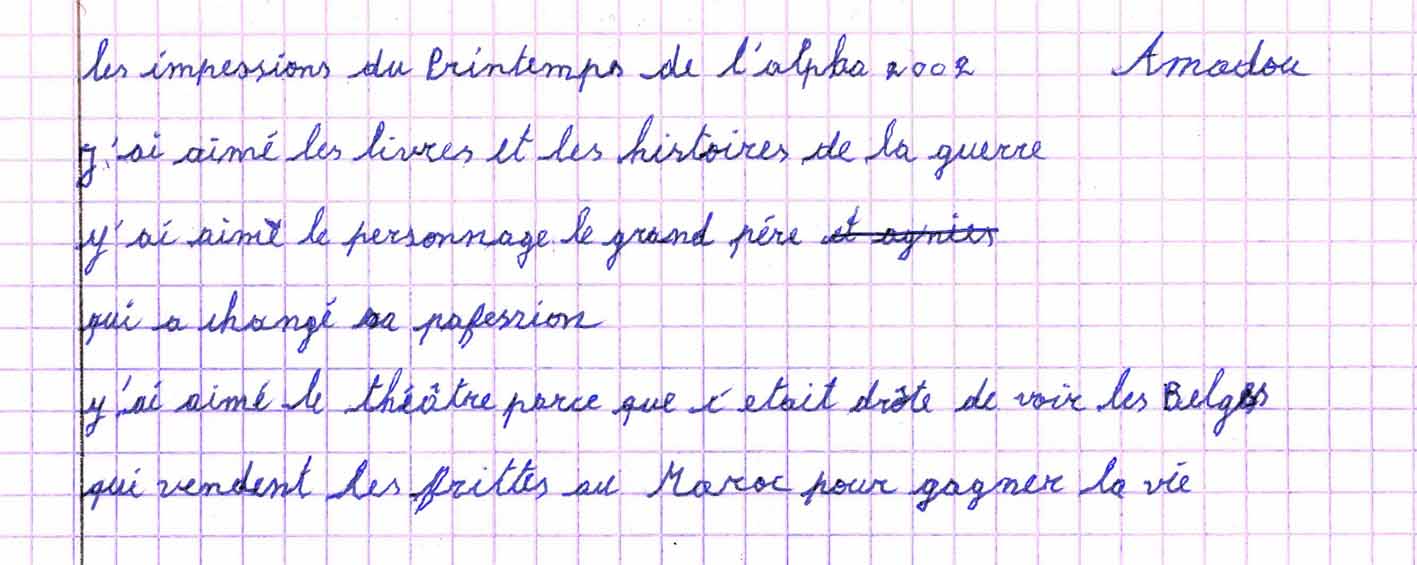 les impessions du Printemps de l'alpha 2002 Amadou
J'ai aimé les livres et les histoires de la guerre
y'ai aimé le personnage le grand pére et agnies
qui a changé sa pafession
y'ai aimé le théâtre parce que c'etait drôte de voir les Belges
qui vendent des frittes au Maroc pour gagner la vie